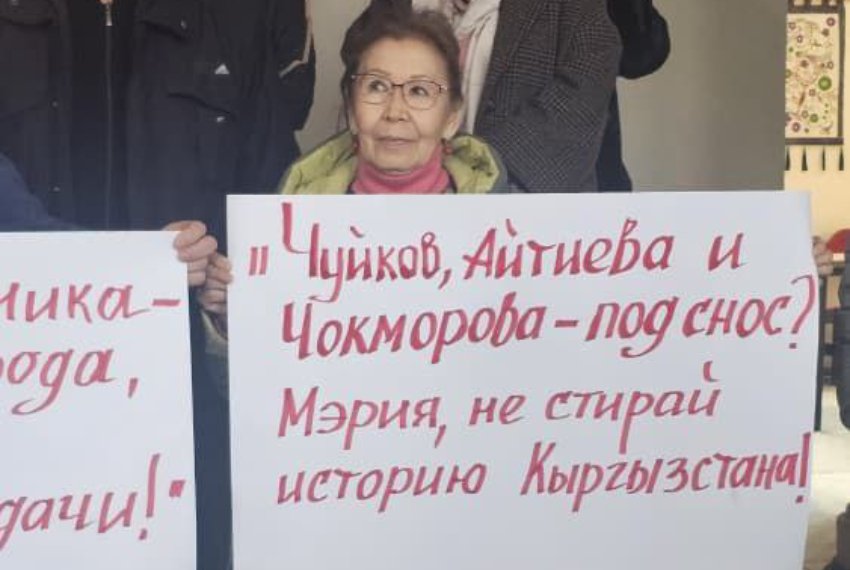 ника–
рода,
дачи!"
"Чуйков, Айтиева и
Чокморова – под снос?
Мэрия, не стирай
историю Кыргызстана!